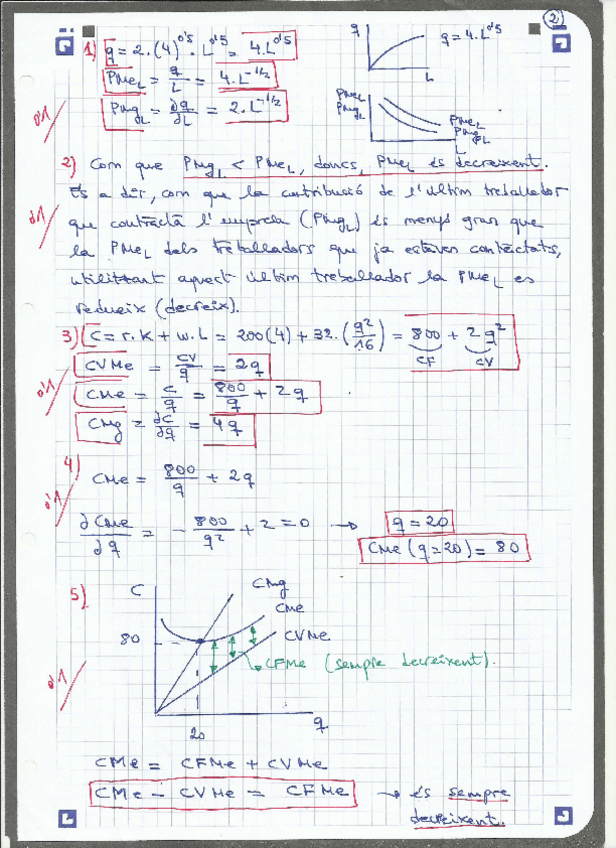 2
1) q = 2·(4)^0'5 · L^0'5 = 4·L^0'5
q
q = 4·L^0'5
L
PMe_L = q/L = 4·L^-1/2
PMg_L = ∂q/∂L = 2·L^-1/2
0'1
PMe_L
PMg_L
PMe_L
PMg_L
L
2) Com que PMg_L < PMe_L, doncs, PMe_L és decreixent.
És a dir, com que la contribució de l'últim treballador
0'1
que contracta l'empresa (PMg_L) és menys gran que
la PMe_L dels treballadors que ja estaven contractats,
utilitzant aquest últim treballador la PMe_L es
redueix (decreix).
3) C = r·K + w·L = 200(4) + 32·(q²/16) = 800 + 2q²
CF CV
CVMe = CV/q = 2q
0'1
CMe = C/q = 800/q + 2q
CMg = ∂C/∂q = 4q
4)
CMe = 800/q + 2q
0'1
∂CMe/∂q = - 800/q² + 2 = 0 → q = 20
CMe (q=20) = 80
5)
C
CMg
CMe
CVMe
80
CFMe (sempre decreixent).
0'1
20
q
CMe = CFMe + CVMe
CMe - CVMe = CFMe → és sempre
decreixent.